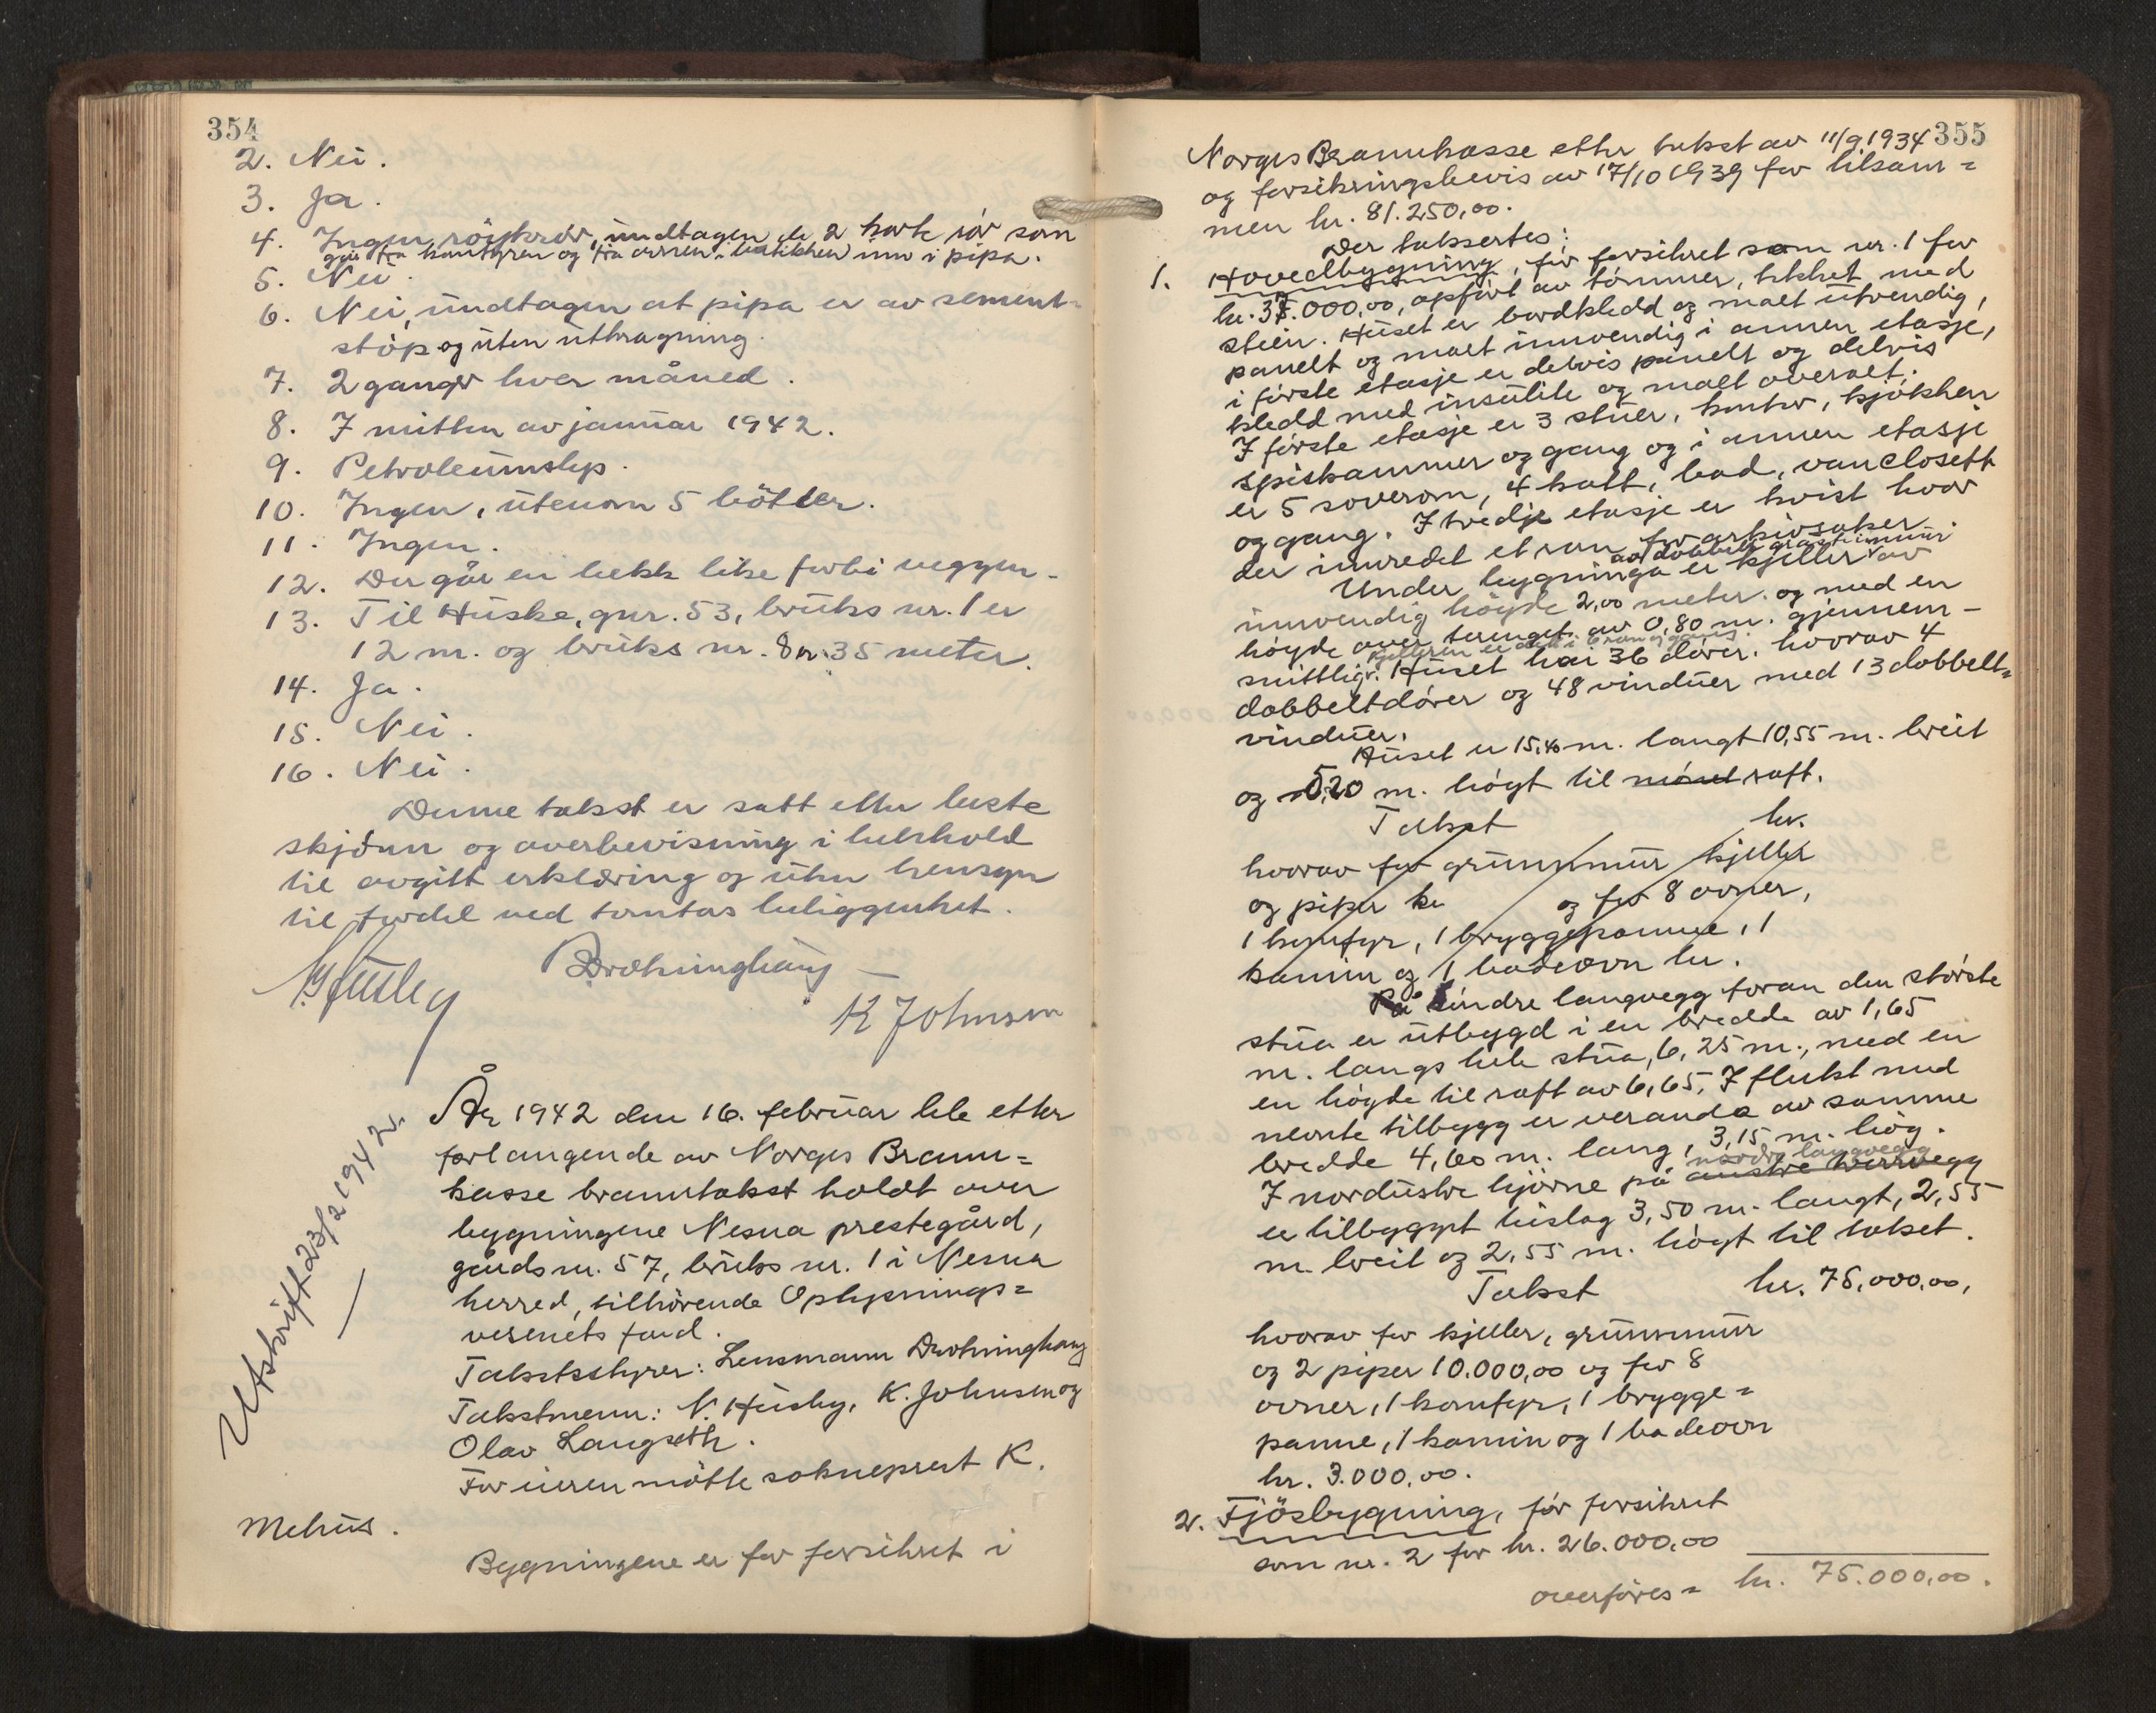 354
2. Nei.
3. Ja.
4. Ingen röykrör, undtagen de 2 korte rör som
går fra komfyren og fra ovnen i butikken inn i pipa.
5. Nei.
6. Nei, undtagen at pipa er av sement-
stöp og uten utkragning.
7. 2 ganger hver måned.
8. I mitten av januar 1942.
9. Petroleumslys.
10. Ingen, utenom 5 bötter.
11. Ingen.
12. Der går en bekk like forbi veggen.
13. Til Huske, gnr. 53, bruks nr. 1 er
12 m. og bruks nr. 8 35 meter.
14. Ja.
15. Nei.
16. Nei.
Denne takst er satt etter beste
skjönn og overbevisning i henhold
til avgitt erklæring og uten hensyn
til fordel ved tomtas beliggenhet.
N. Husby Dronninghaug
K Johnsen
Utskrift 23/2 1942.
År 1942 den 16. februar ble etter
forlangende av Norges Brann=
kasse branntakst holdt over
bygningene Nesna prestegård,
gårds nr. 57, bruks nr. 1 i Nesna
herred, tilhörende Oplysnings=
vesenets fond.
Takstsstyrer: Lensmann Dronninghaug
Takstmenn: N. Husby, K. Johnsen og
Olav Langseth.
For eieren mötte sokneprest K.
Mehus.
Bygningene er för forsikret i
355
Norges Brannkasse etter takst av 11/9 1934
og forsikringsbevis av 17/10 1939 for tilsam=
men kr. 81.250,00.
Der taksertes:
1. Hovedbygning, för forsikret som nr. 1 for
kr. 35.000,00, opfört av tömmer, tekket med
stein. Huset er bordkledd og malt utvendig,
panelt og malt innvendig i annen etasje,
i förste etasje er delvis panelt og delvis
kledd med insulite og malt overalt.
I förste etasje er 3 stuer, kontor, kjökken
spiskammer og gang og i annen etasje
er 5 soverom, 4 kott, bad, vanclosett
og gang. I tredje etasje er kvist hvor
der innredet et rom for arkivsaker.
av dobbelt gråsteinmur
Under bygninga er kjeller av
innvendig höyde 2,00 meter. og med en
höyde over terrenget av 0,80 m. gjennem-
kjelleren er delt i 6 rom og gang.
snittlig. Huset har 36 dörer. hvorav 4
dobbeltdörer og 48 vinduer med 13 dobbelt=
vinduer.
Huset er 15,40 m. langt 10,55 m. breit
og 5,20 m. högt til mönet raft.
Takst kr.
hvorav for grunnmur kjeller
og piper kr og for 8 ovner,
1 komfyr, 1 bryggepanne, 1
kamin og 1 badeovn kr.
På söndre langvegg foran den störste
stua er utbygd i en bredde av 1,65
m. langs hele stua, 6,25 m., med en
en högde til raft av 6,65. I flukt med
nevnte tilbygg er veranda av samme
bredde 4,60 m. lang, 3,15 m. hög.
nordre langvegg
I nordöstre hjörne på austre tverrvegg
er tilbyggt bislag 3,50 m. langt, 2,55
m. breit og 2,55 m. högt til taket.
Takst kr. 75.000,00,
hvorav for kjeller, grunnmur
og 2 piper 10.000,00 og for 8
ovner, 1 komfyr, 1 brygge=
panne, 1 kamin og 1 badeovn
kr. 3.000,00.
2. Fjösbygning, för forsikret
som nr. 2 for kr. 26.000,00
overföres = kr. 75.000,00.